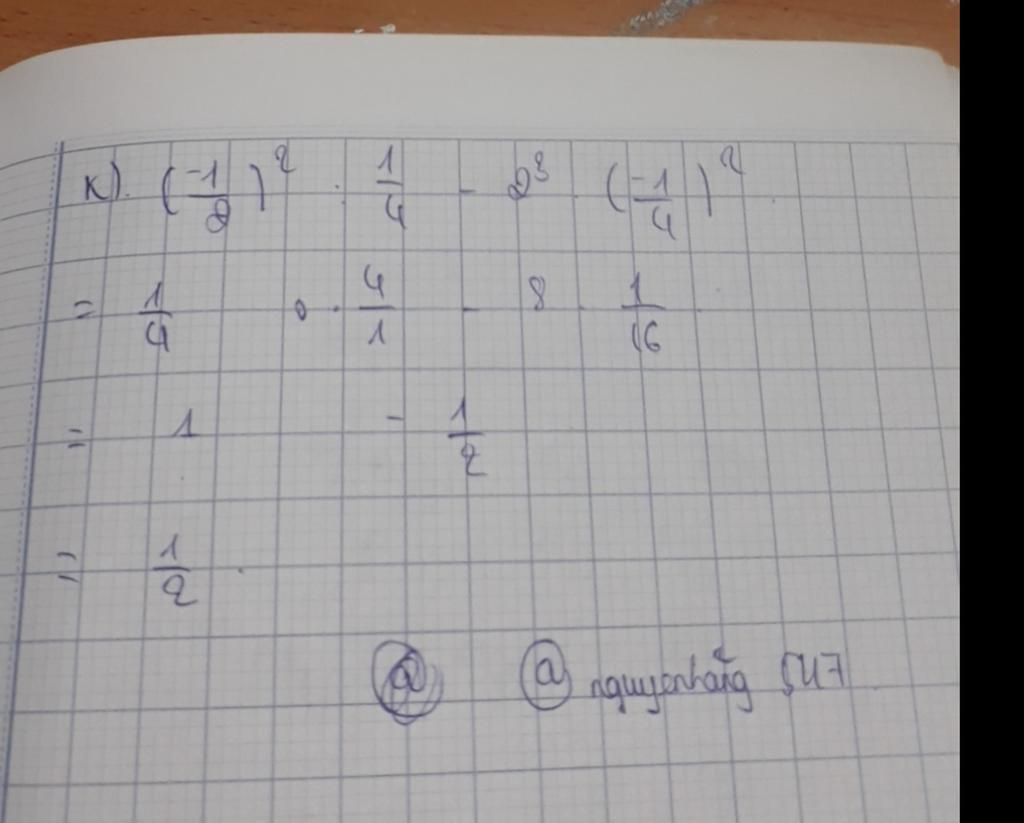 K). (-1/2)² : 1/4 - 2³ . (-1/4)²
= 1/4 . 4/1 - 8 . 1/16
= 1 - 1/2
= 1/2 .
@ @ nguyenhằng 547